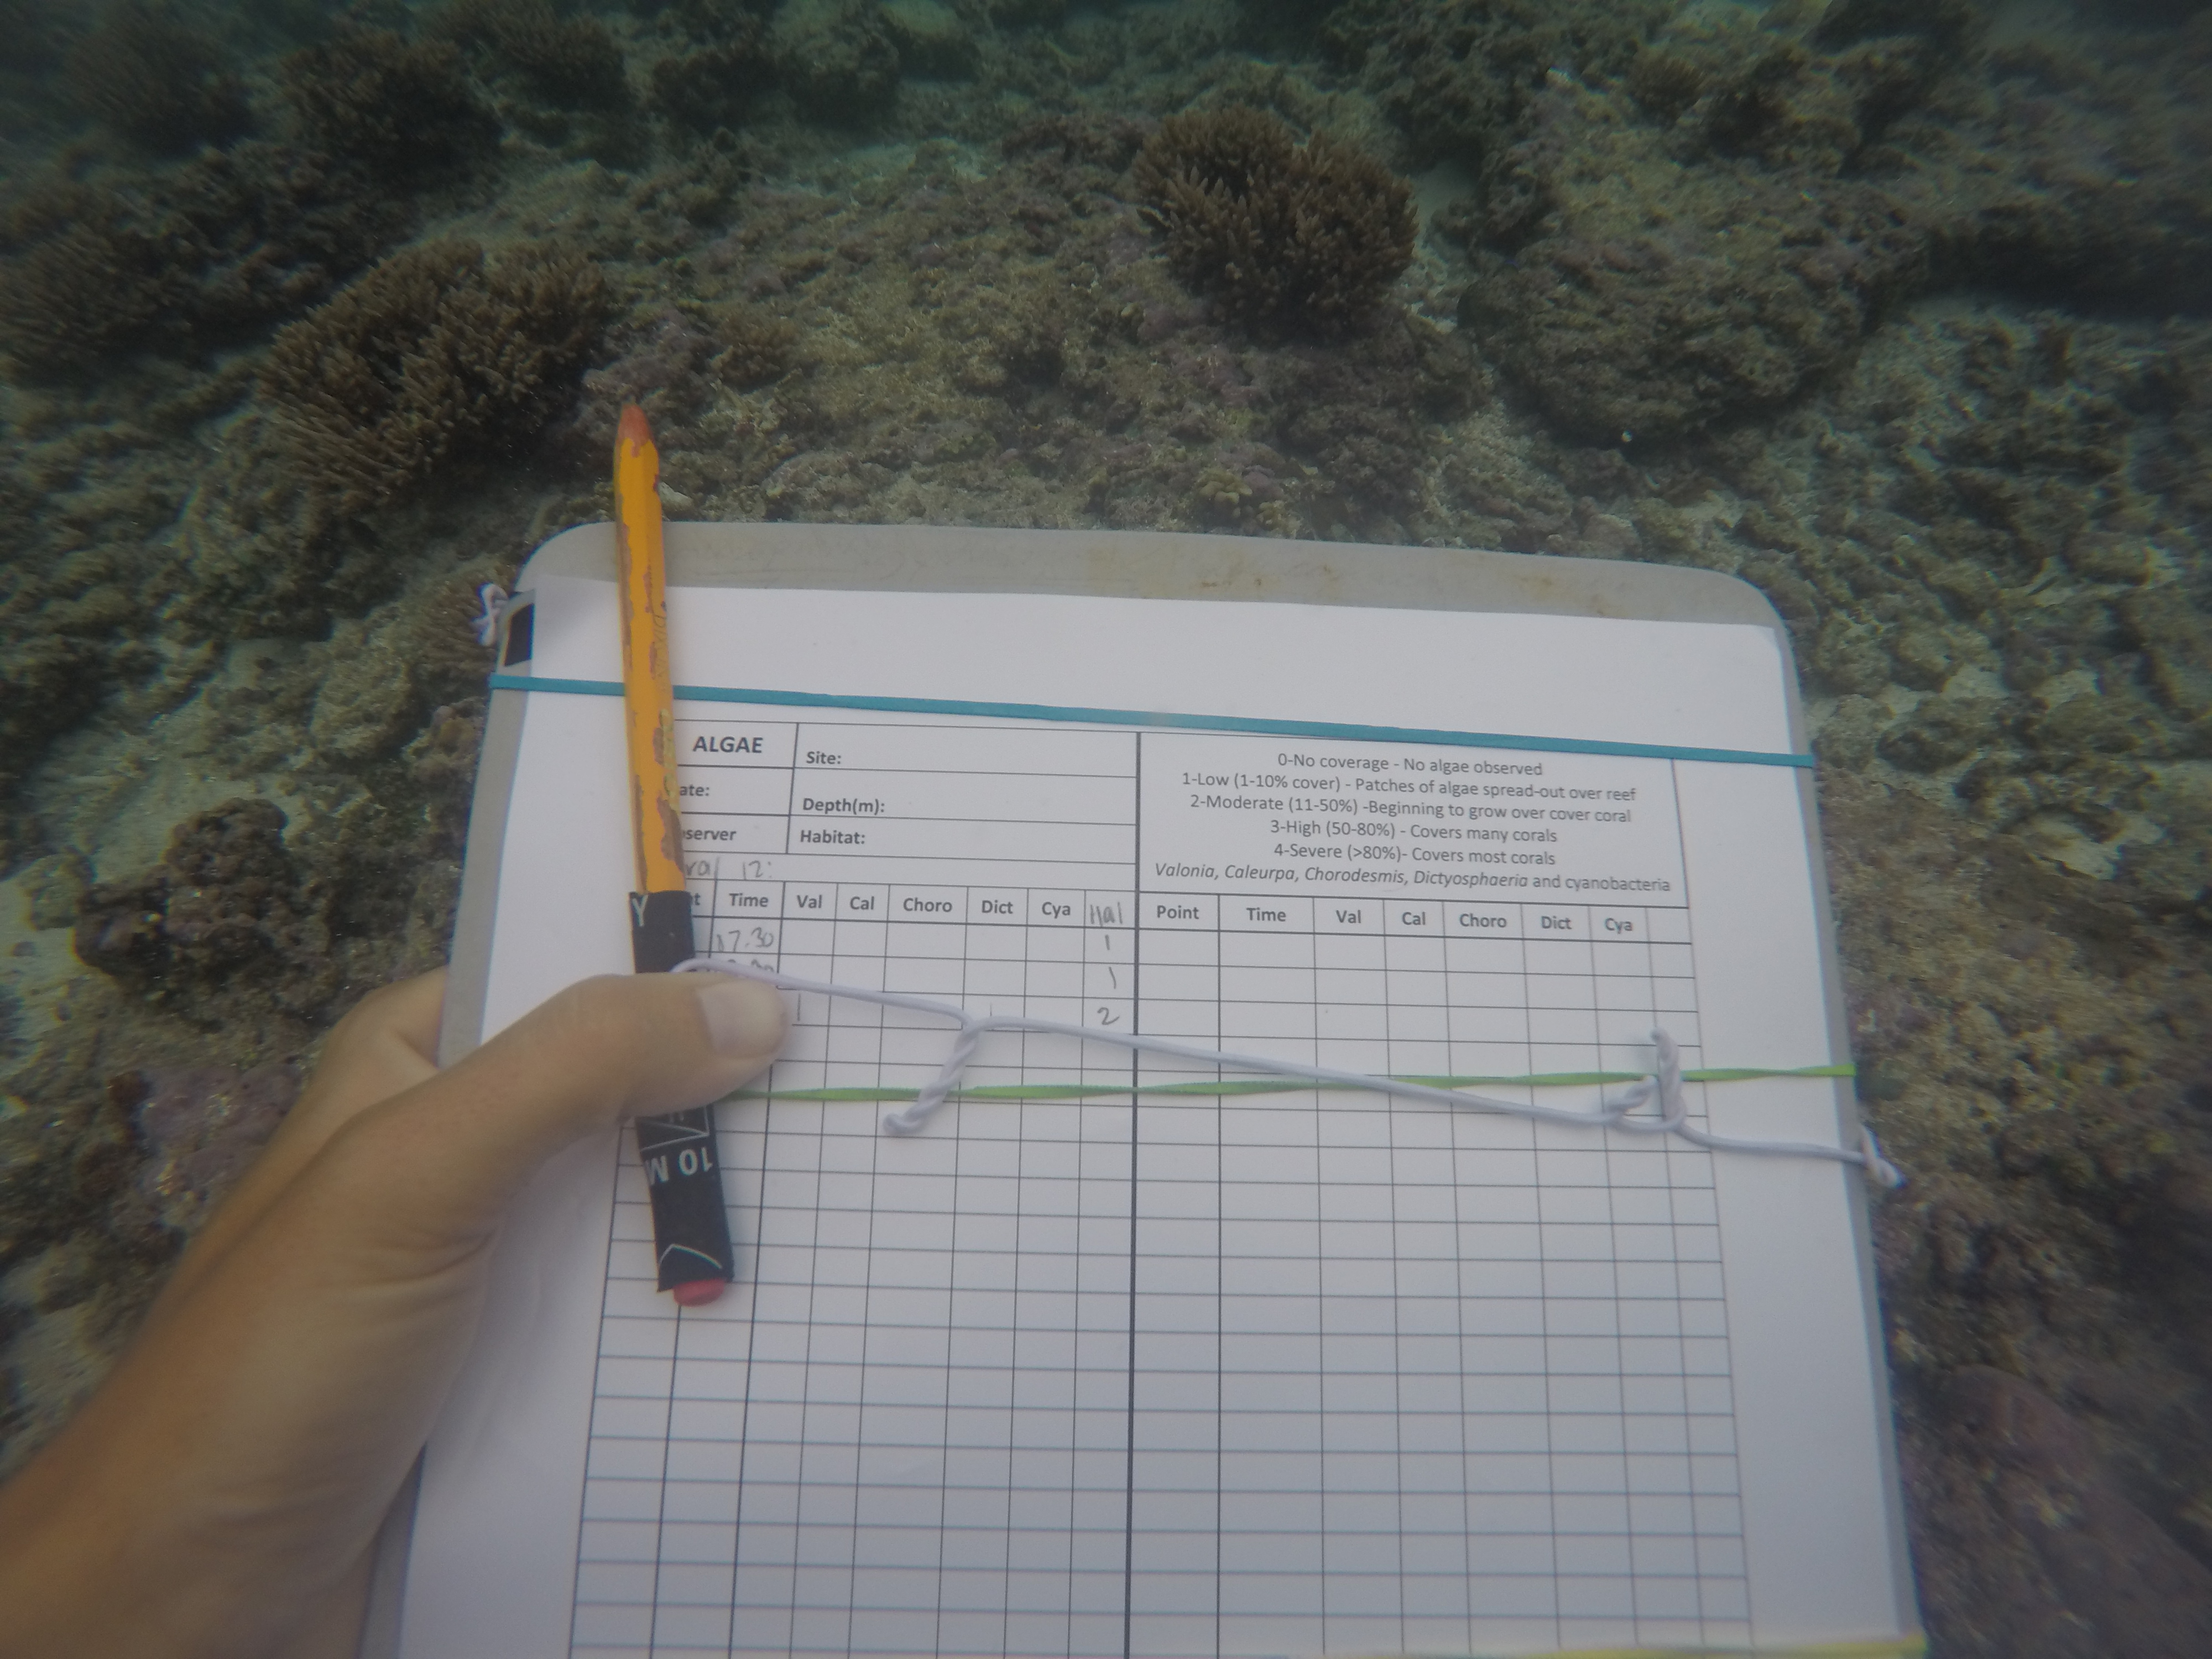 ALGAE Site:
ate: Depth(m):
server Habitat:
0-No coverage - No algae observed
1-Low (1-10% cover) - Patches of algae spread-out over reef
2-Moderate (11-50%) -Beginning to grow over cover coral
3-High (50-80%) - Covers many corals
4-Severe (>80%)- Covers most corals
Valonia, Caleurpa, Chorodesmis, Dictyosphaeria and cyanobacteria
12:
t Time Val Cal Choro Dict Cya Hal Point Time Val Cal Choro Dict Cya
17.30 1
1
1 2
Y
10 M